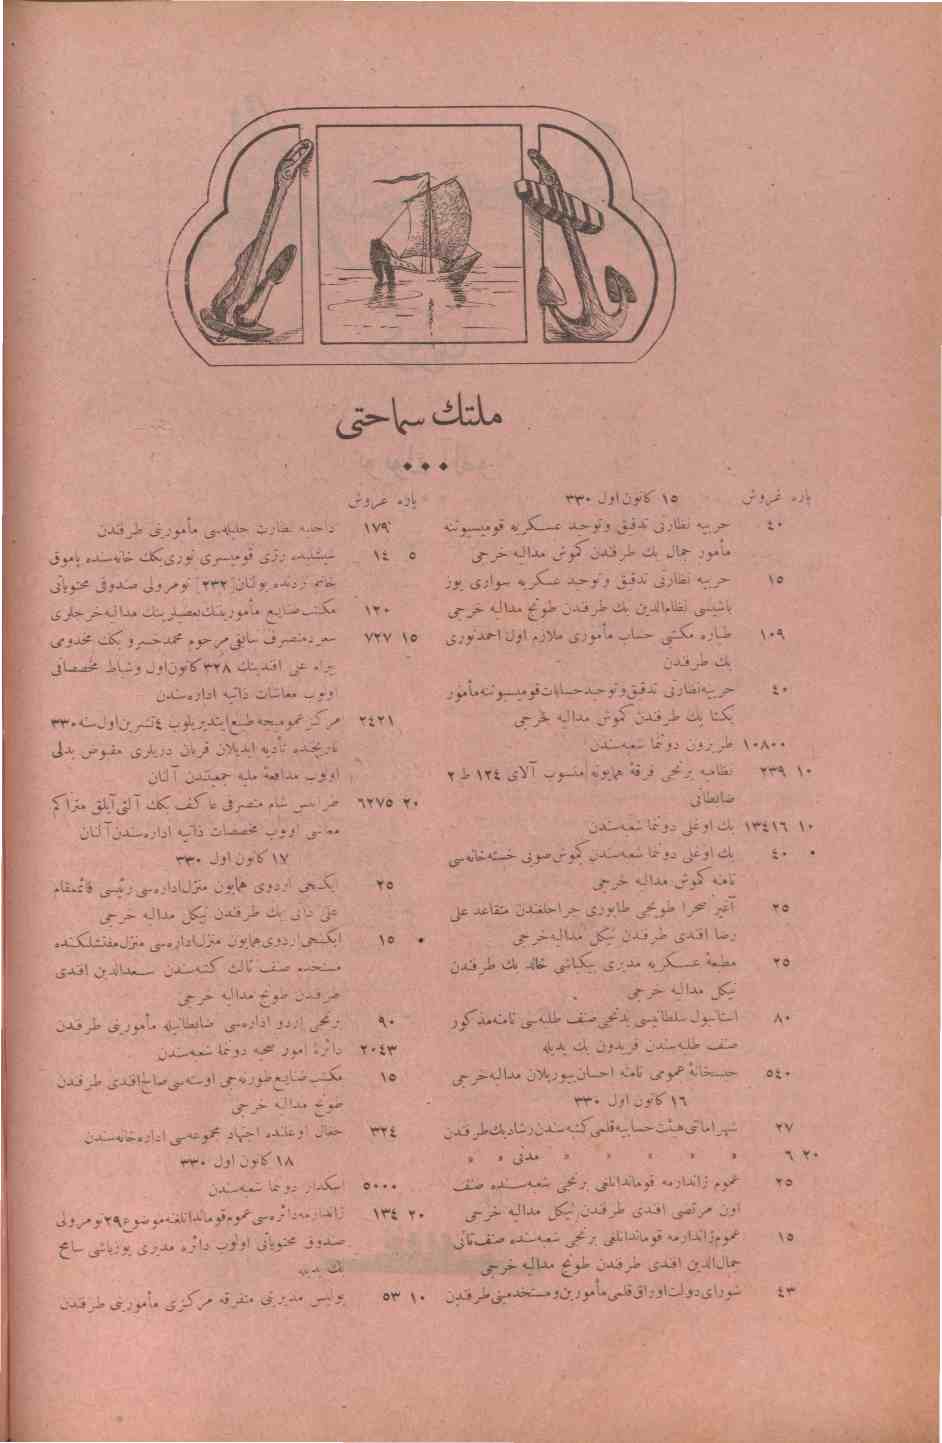 ملتك سماحتی
پاره غروش ١٥ كانون اول ٣٣٠
٤٠ حربیه نظارتی تدقیق وتوحید عسكریه قومیسیوننه
مأمور جمال بك طرفندن كموش مدالیه خرجی
١٥ حربیه نظارتی تدقیق وتوحید عسكریه سواری یوز
باشیسی نظام‌الدین بك طرفندن طونج مدالیه خرجی
١٠٩ طیاره مكتبی حساب مأموری ملازم اول احمد نوری
بك طرفندن
٤٠ حربیه نظارتی تدقیق وتوحید حسابات قومیسیوننه مأمور
یكتا بك طرفندن كموش مدالیه خرجی
١٠٨٠٠ طربزون دونما شعبه‌سندن
١٠ ٢٣٩ نظامیه برنجی فرقهٔ همایونه منسوب آلای ١٢٤ ط ٢
ضابطانی
١٠ ١٣٤١٦ بك اوغلی دونما شعبه‌سندن
٤٠ بك اوغلی دونما شعبه‌سندن كموش صویی خسته‌خانه‌سی
نامنه كموش مدالیه خرجی
٢٥ آغیر صحرا طوپجی طابوری جراحلغندن متقاعد علی
رضا افندی طرفندن نیكل مدالیه خرجی
٢٥ مطبعهٔ عسكریه مدیری بیكباشی خالد بك طرفندن
نیكل مدالیه خرجی
٨٠ استانبول سلطانیسی یدنجی صنف طلبه‌سی نامنه مذكور
صنف طلبه‌سندن فریدون بك یدیله
٥٤٠ حبسخانهٔ عمومی نامنه احسان بیوریلان مدالیه خرجی
١٦ كانون اول ٣٣٠
٢٧ شهر امانتی هیئت حسابیه قلمی كتبه‌سندن رشاد بك طرفندن
٢٠ ٦ » » » » مدنی » »
٢٥ عموم ژاندارمه قوماندانلغی برنجی شعبه‌سنده صنف
اون مرتضی افندی طرفندن نیكل مدالیه خرجی
١٥ عموم ژاندارمه قوماندانلغی برنجی شعبه‌سنده صنف ثانی
جمال‌الدین افندی طرفندن طونج مدالیه خرجی
٤٣ شورای دولت اوراق قلمی مأمورین و مستخدمینی طرفندن
پاره غروش
١٧٩ داخلیه نظارت جلیله‌سی مأمورینی طرفندن
٥ ١٤ شیشلیده رژی قومیسری نوری بكك خانه‌سنده پاموق
خانم نزدنده بولنان [٢٣٢] نومرولی صندوقی محتویاتی
١٢٠ مكتب صنایع مأمورینك مدالیه خرجلری
١٥ ٧٢٧ سعرد متصرف سابقی مرحوم محمد خسرو بكك مخدومی
پیراه علی افندینك ٣٢٨ كانون اول وشباط مخصصاتی
اولوب معاشات ذاتیه اداره‌سندن
٢٤٢١ مركز عمومیجه طبع ایتدیریلوب ٤ تشرین اول سنه ٣٣٠
تاریخنده تأدیه ایدیلان قربان دریلری مقبوض بدلی
اولوب مدافعهٔ ملیه جمعیتندن آلنان
٢٠ ٦٢٧٥ طرابلس شام متصرفی عاكف بكك آلتی آیلق متراكم
معاشی اولوب مخصصات ذاتیه اداره‌سندن آلنان
١٧ كانون اول ٣٣٠
٢٥ ایكنجی اردوی همایون منزل اداره‌سی رئیسی قائممقام
علی بك طرفندن نیكل مدالیه خرجی
١٥ ایكنجی اردوی همایون منزل اداره‌سی منزل مفتشلكنده
مستخدم صنف ثالث كتبه‌سندن سعدالدین افندی
طرفندن طونج مدالیه خرجی
٩٠ برنجی اردو اداره‌سی ضابطانیله مأمورینی طرفندن
٢٠٤٣ دائرهٔ امور صحیه دونما شعبه‌سندن
١٥ مكتب صنایع طورنه‌جی اوسته‌سی صالح افندی طرفندن
طونج مدالیه خرجی
٣٢٤ جغال اوغلنده اجتهاد مجموعه‌سی اداره‌خانه‌سندن
١٨ كانون اول ٣٣٠
٥٠٠٠ اسكدار دونما شعبه‌سندن
٢٠ ١٣٤ ژاندارمه دائره‌سی عموم قوماندانلغنه موضوع ٢٩ نومرولی
صندوق محتویاتی اولوب دائره مدیری یوزباشی سامح
بك یدیله
١٠ ٥٣ پولیس مدیریتی متفرقه مركزی مأمورینی طرفندن